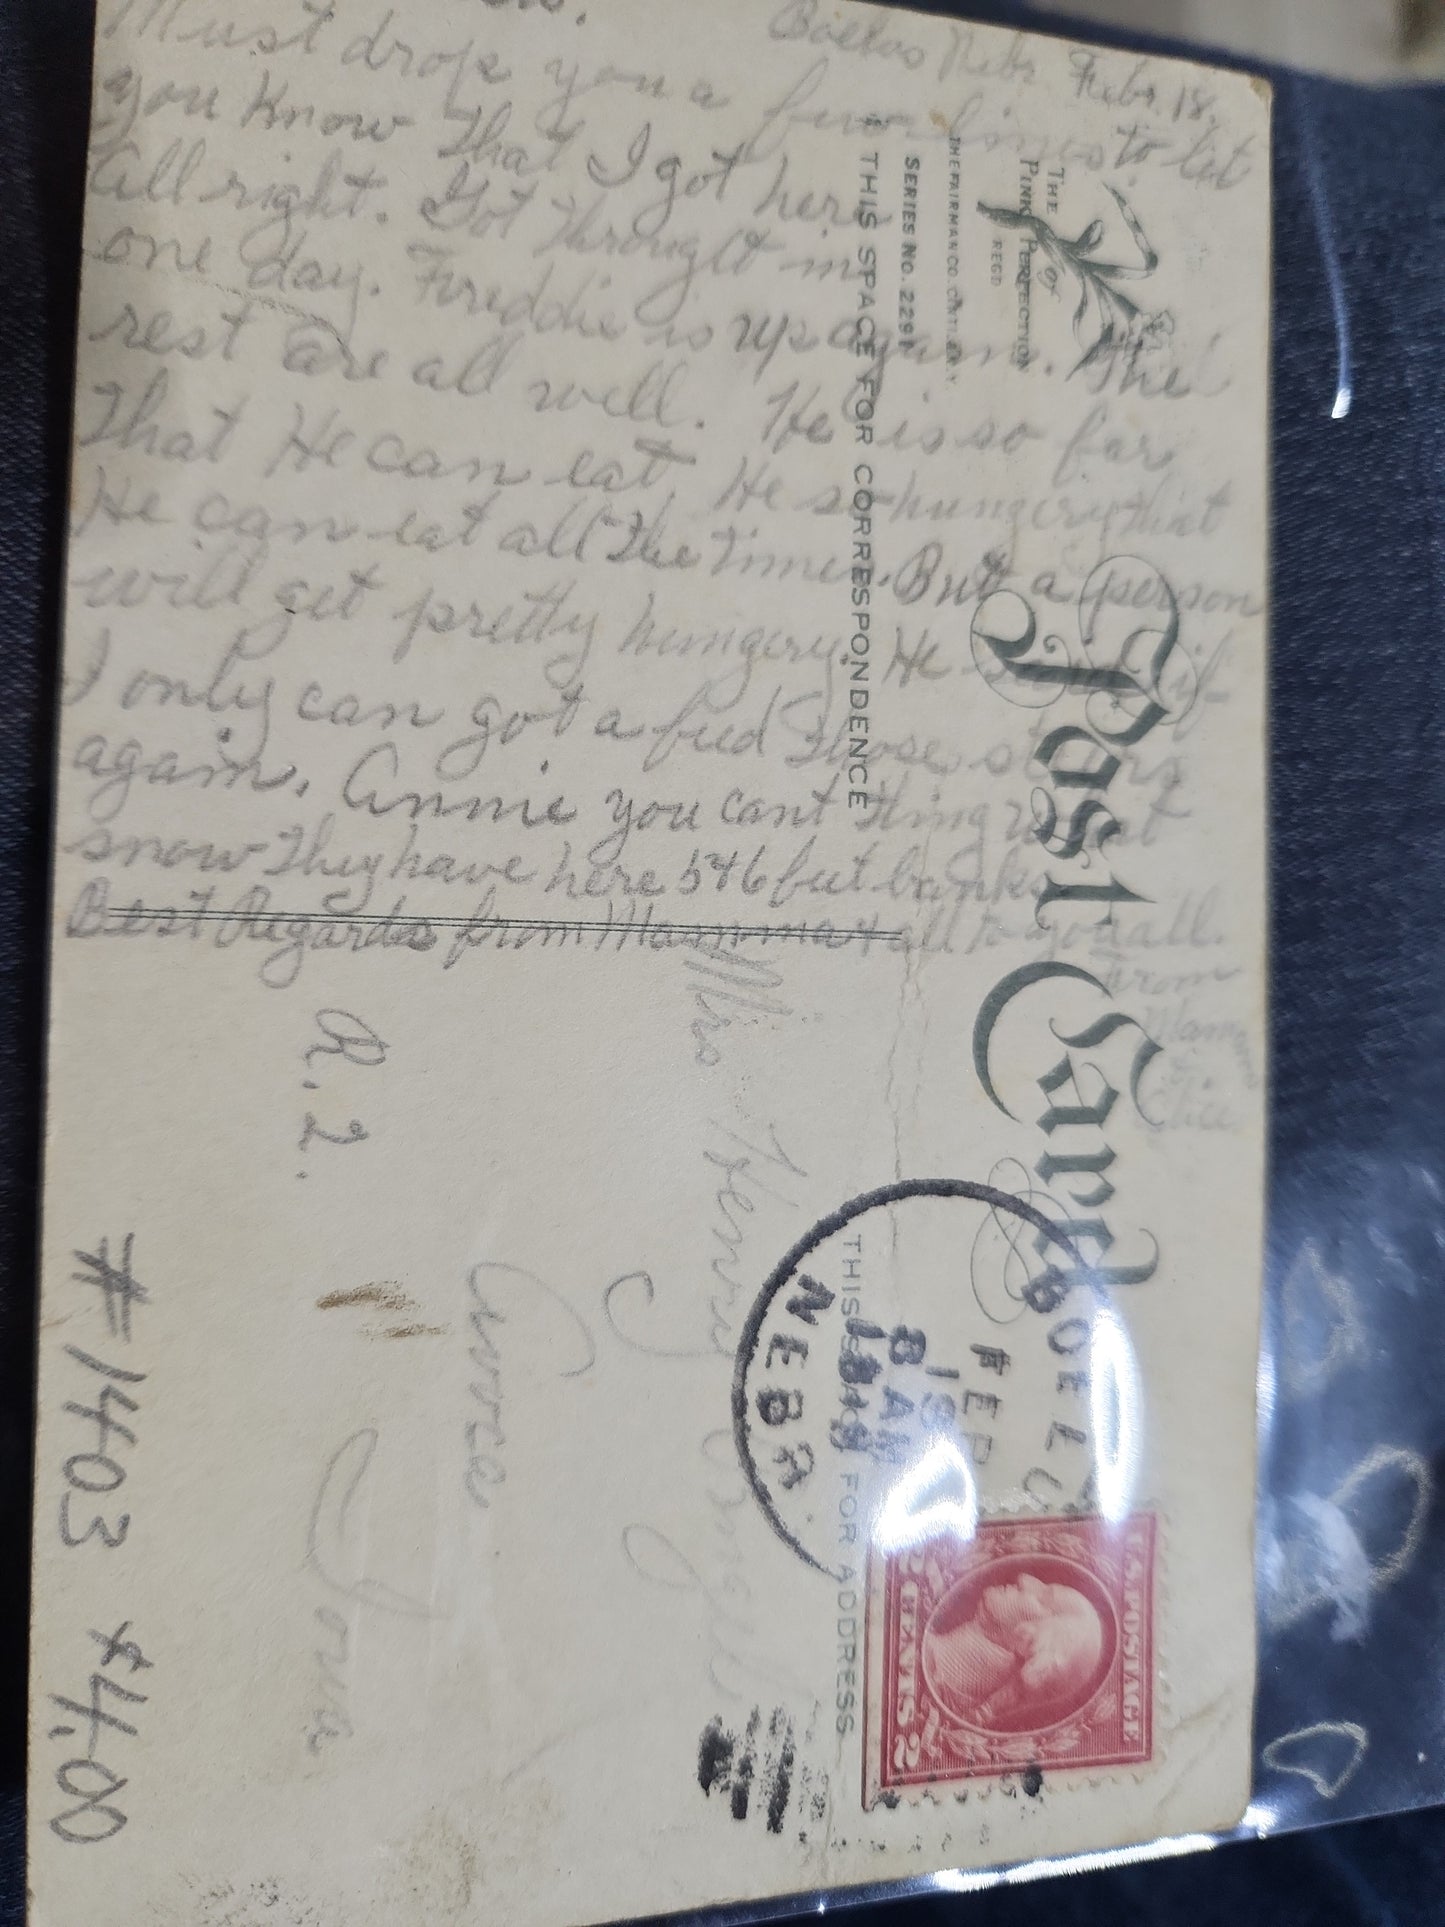 Boelus Nebr. Febr. 18.
Must drop you a few lines to let
you know that I got here
all right. Got throught in
one day. Freddie is up again. The
rest are all well. He is so far
that He can eat. He so hungery that
He can eat all the time. But a person
will get pretty hungery. He said if
I only can got a feed those stars
again. Annie you cant thing what
snow they have here 5 + 6 fut banks
Best Regards from Mamma + all to you all.
From
Mamma
&
Alice
THE
PINK OF PERFECTION
REGD
THE FAIRMAN CO.
SERIES NO. 229
THIS SPACE FOR CORRESPONDENCE
Post Card
THIS SPACE FOR ADDRESS
BOELUS
FEB
19
8 AM
NEBR.
U.S. POSTAGE
2 CENTS 2
Mrs Henry
Avoca
R. 2. Iowa
#1403 4.00